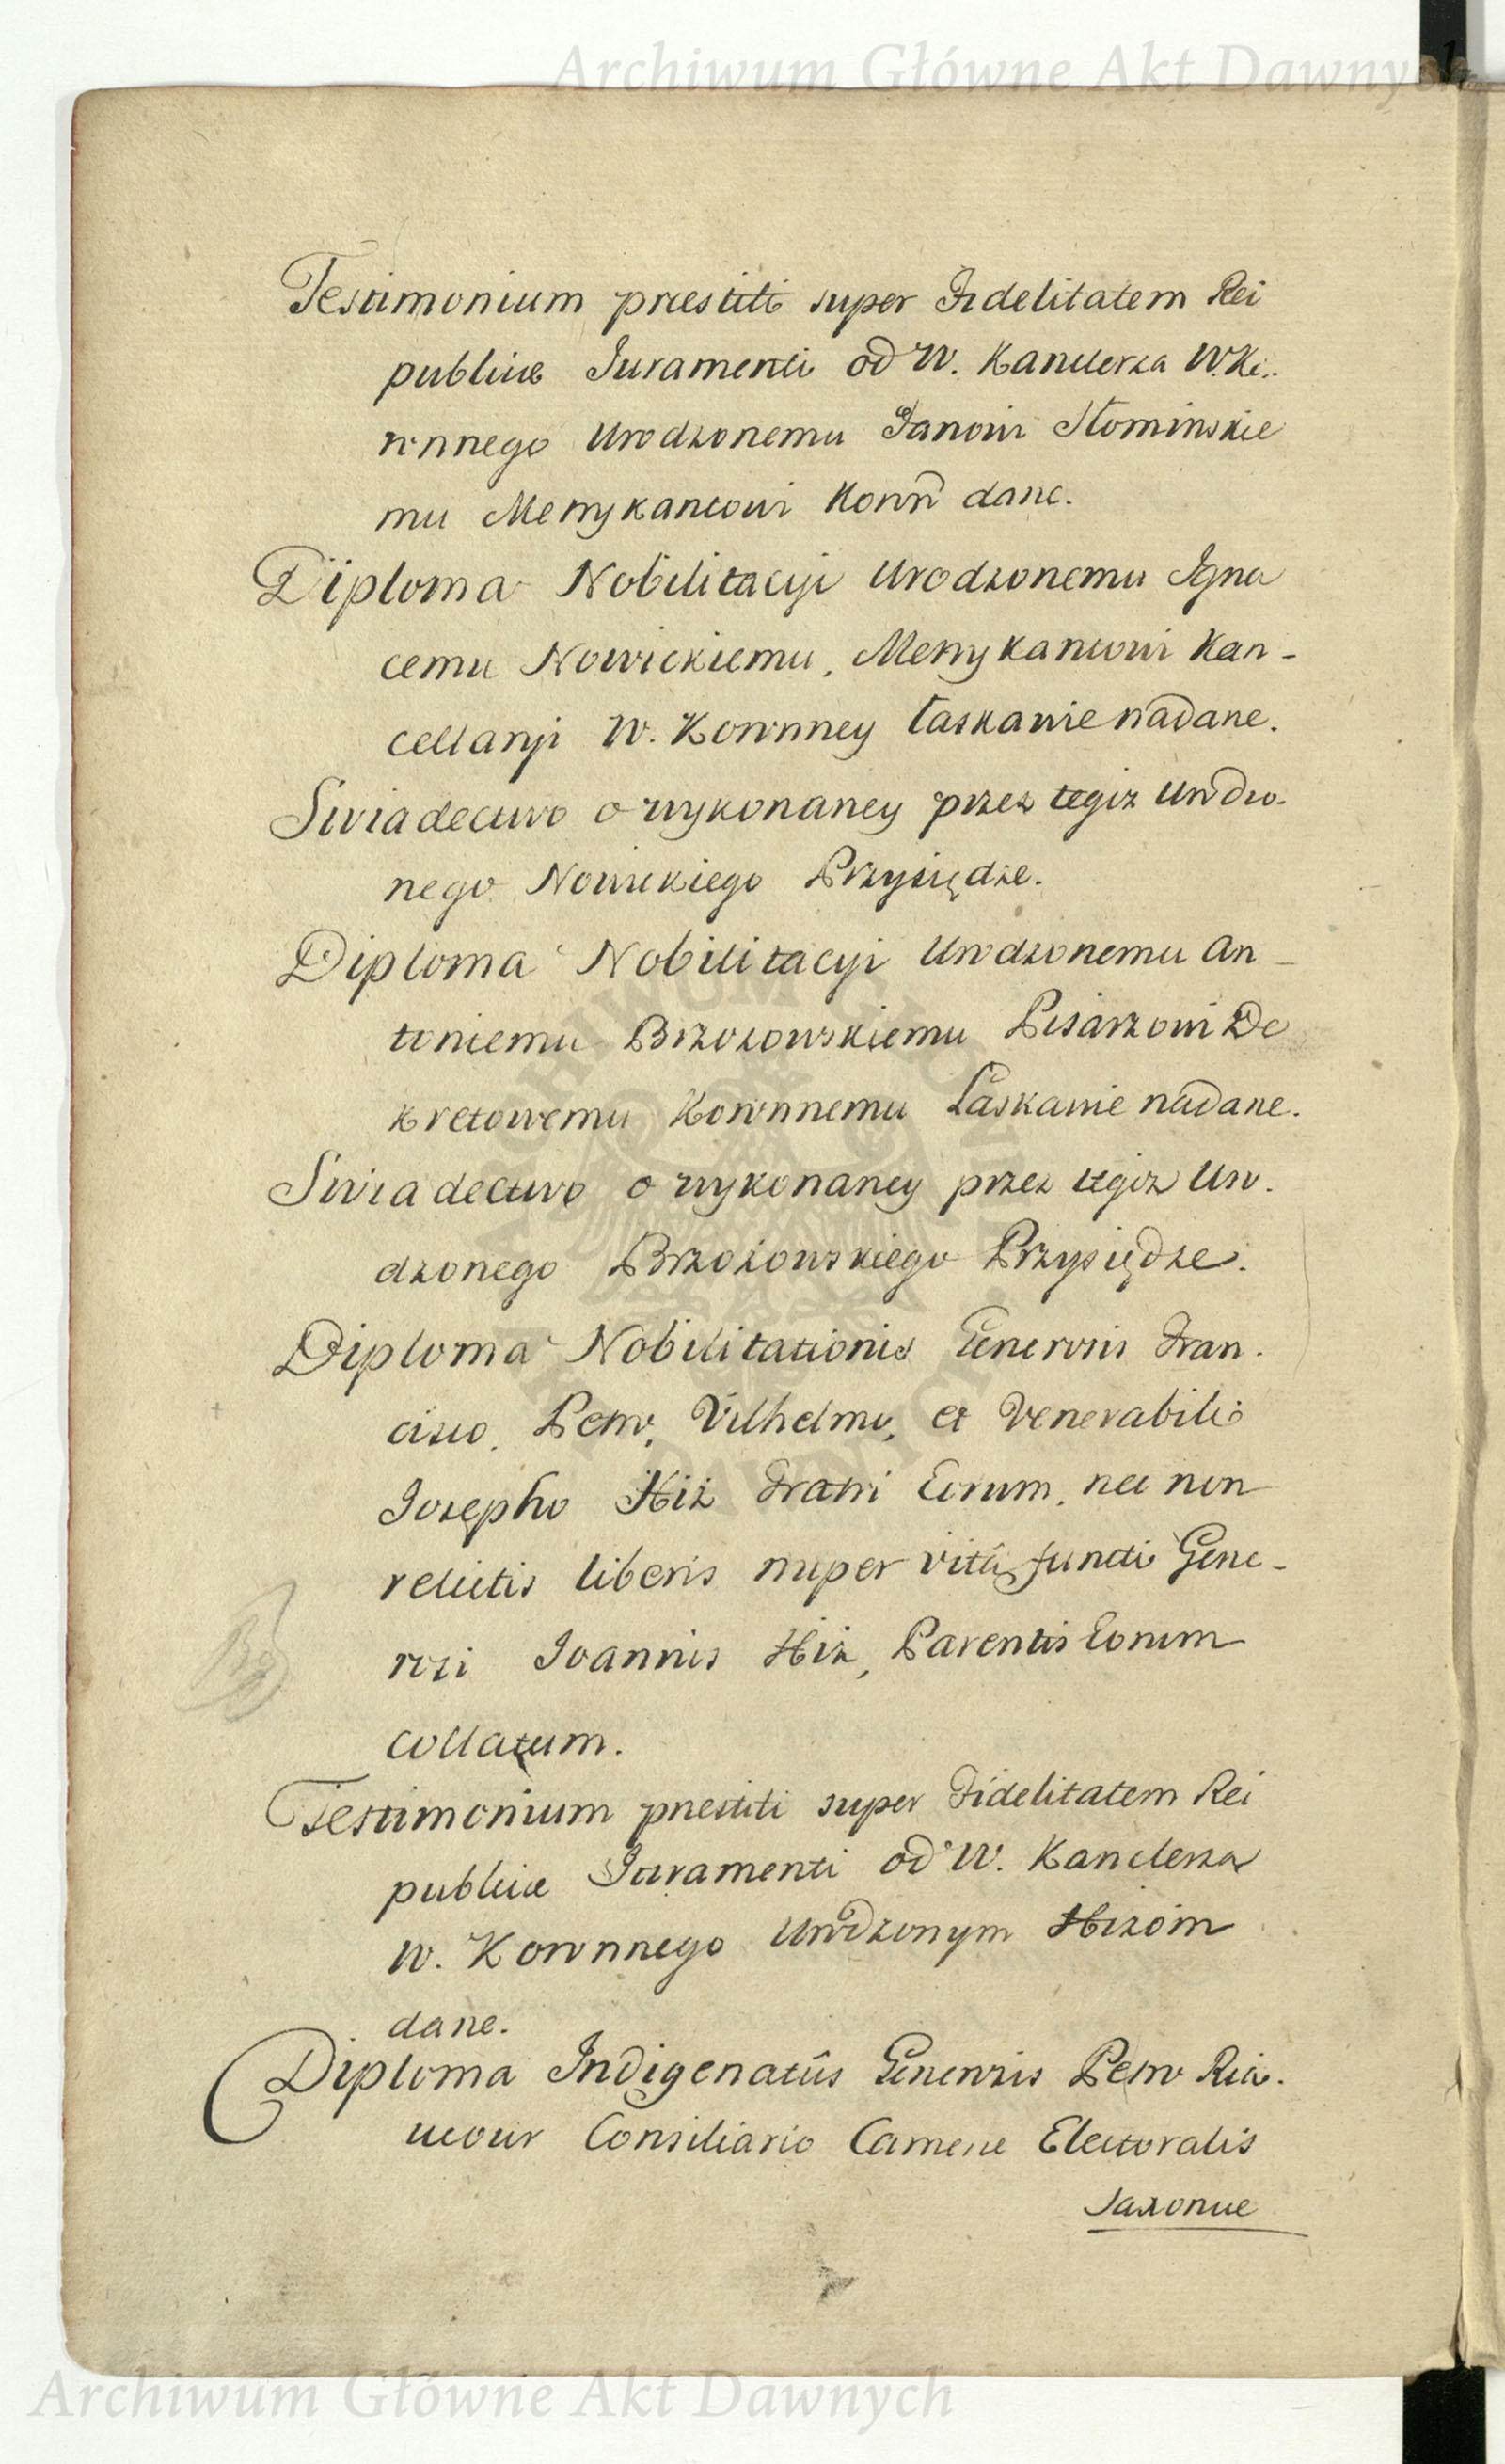 Archiwum Główne Akt Dawnych
Testimonium præstiti super Fidelitatem Rei
publicæ Juramenti od W. Kanclerza W. Ko.
ronnego Urodzonemu Janowi Słominskie
mu Metrykantowi Koroñ dane.
Diploma Nobilitacyi Urodzonemu Igna
cemu Nowickiemu, Metrykantowi Kan-
cellaryi W. Koronney łaskawie nadane.
Swiadectwo o wykonaney przez tegoz Urodzo-
nego Nowickiego Przysiędze.
Diploma Nobilitacyi Urodzonemu An-
toniemu Brzozowskiemu Pisarzowi De
kretowemu Koronnemu Łaskawie nadane.
Swiadectwo o wykonaney przez tegoz Uro.
dzonego Brzozowskiego Przysiędze.
Diploma Nobilitationis Generosis Fran.
cisco, Petro, Vilhelmo, et Venerabili
Josepho Hiż Fratri Eorum, nec non
relictis liberis nuper vitâ functi Gene-
rosi Joannis Hiz, Parentis Eorum
collatum.
Testimonium præstiti super Fidelitatem Rei
publicæ Juramenti od W. Kanclerza
W. Koronnego Urodzonym Hizom
dane.
Diploma Indigenatûs Generosis Petro Ria.
ucour Consiliario Cameræ Electoralis
Saxoniæ
Archiwum Główne Akt Dawnych